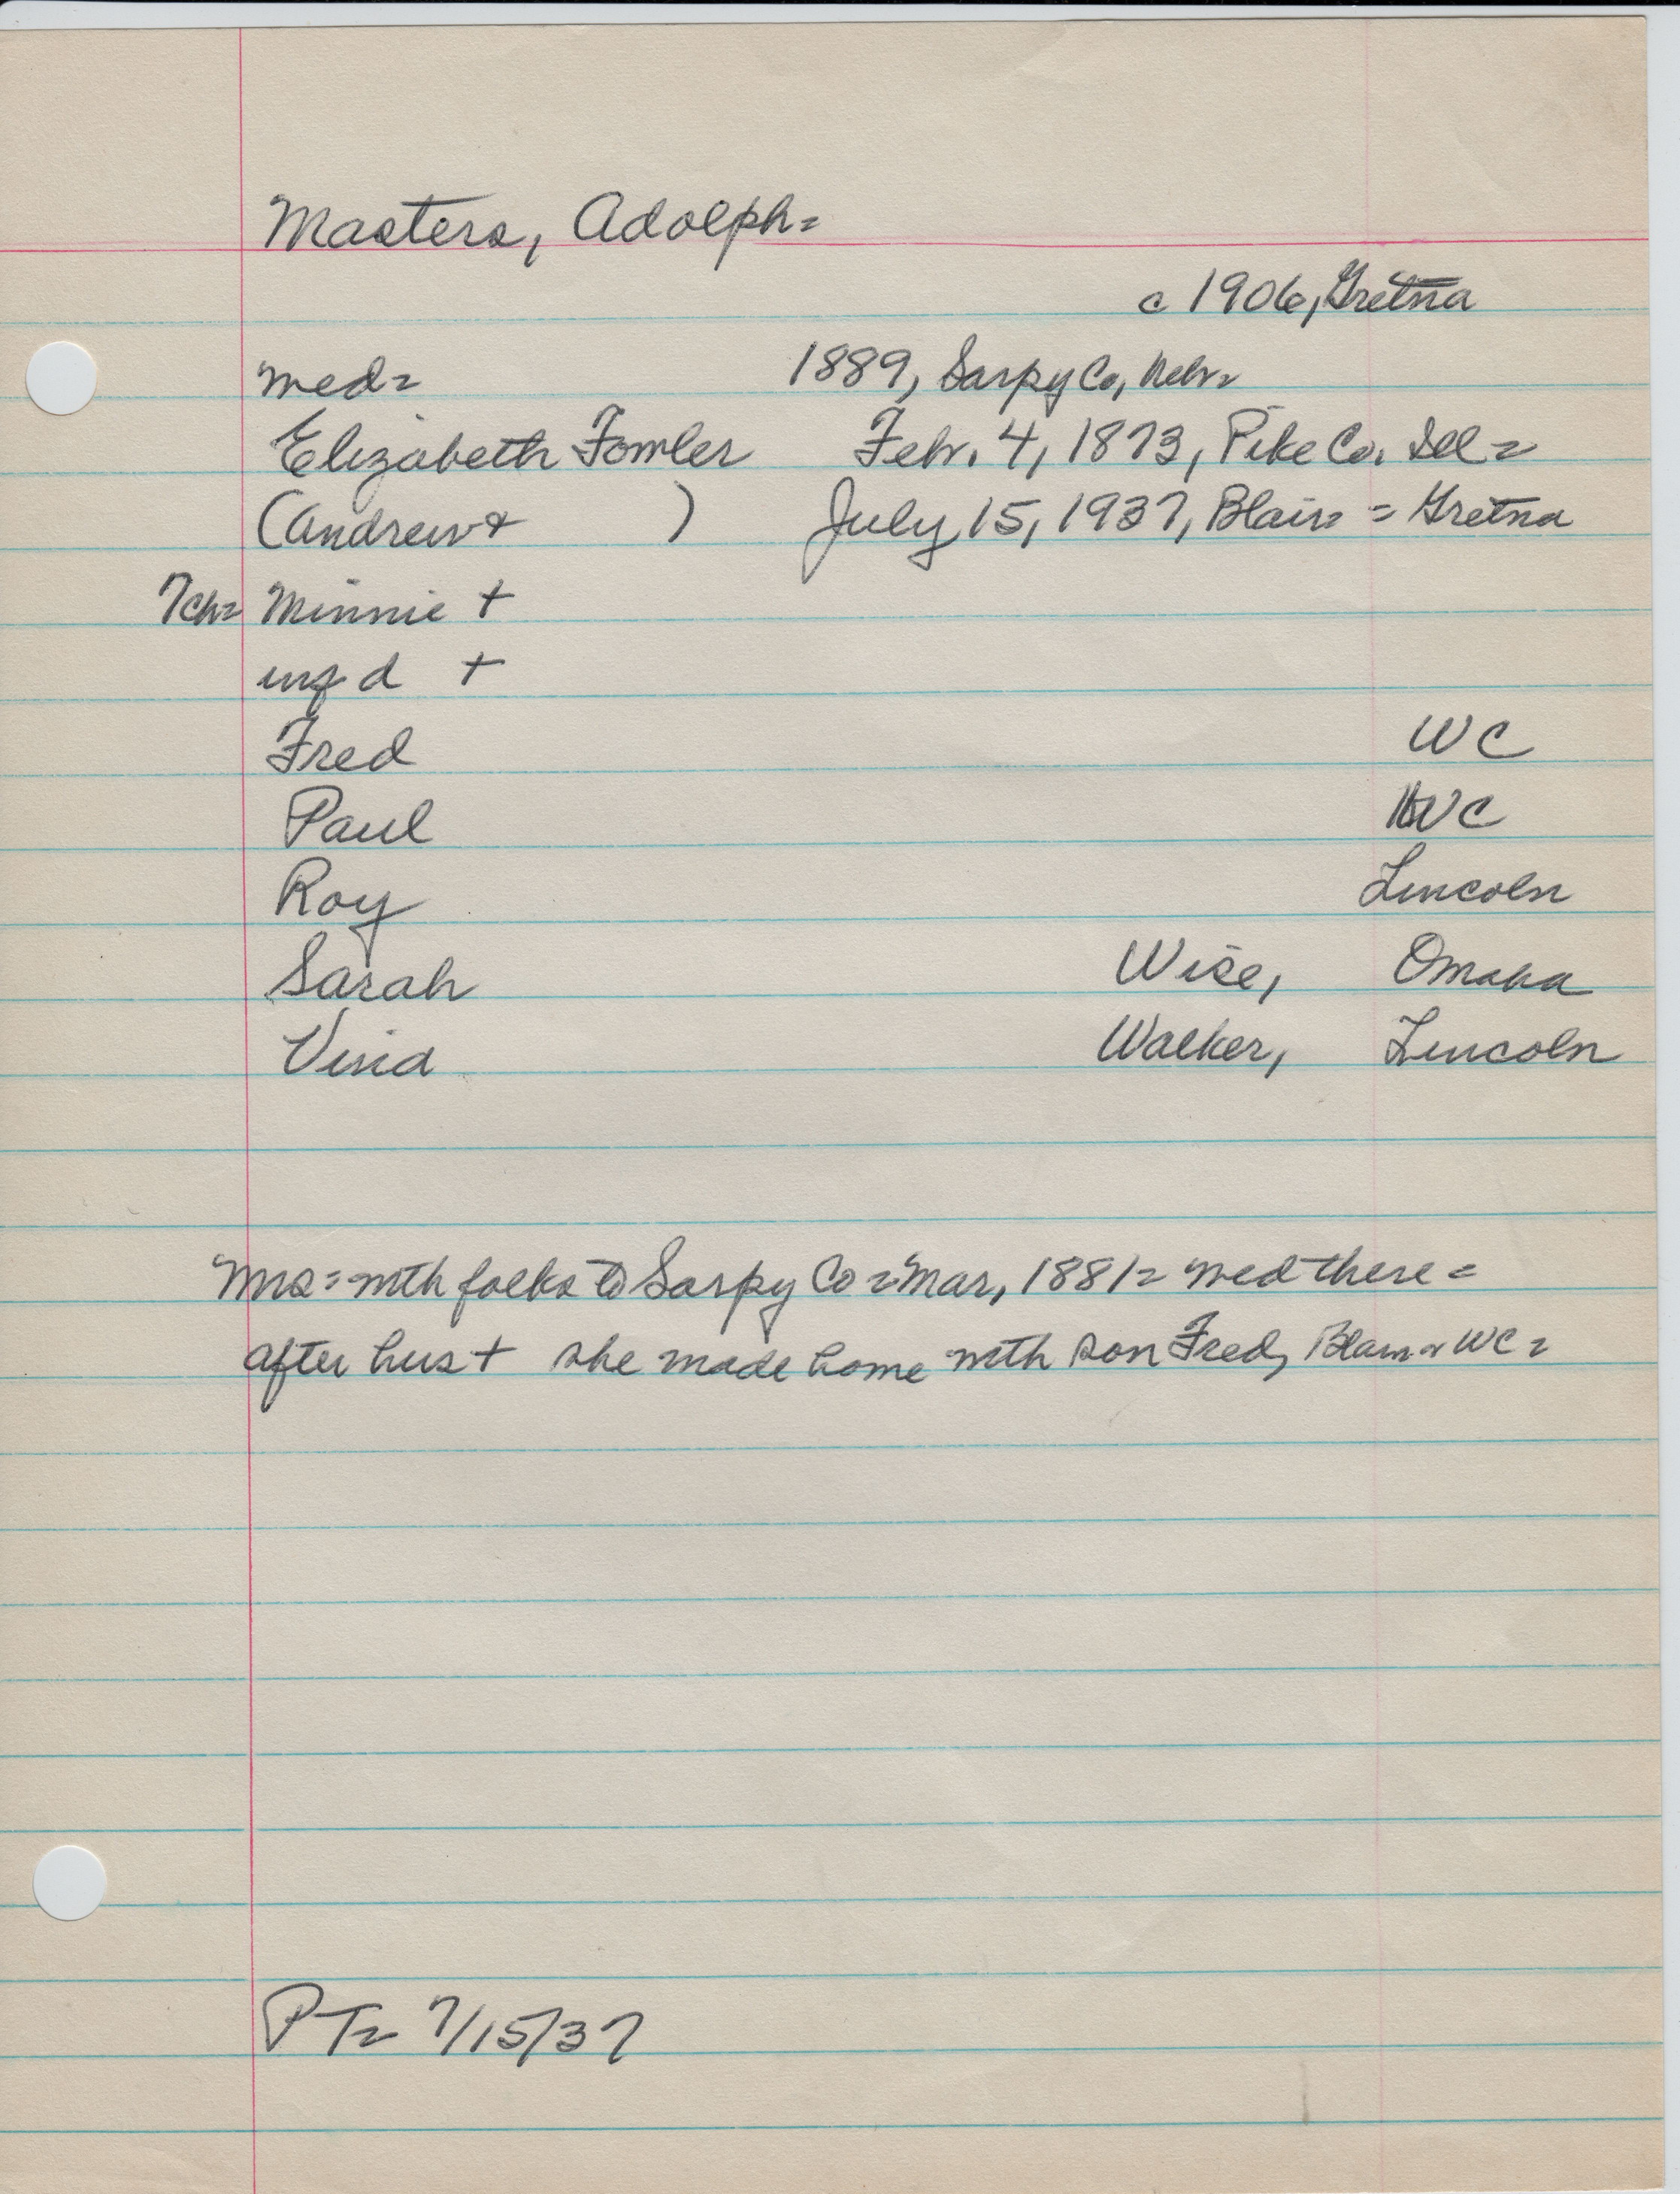 Masters, Adolph=
c 1906, Gretna
med= 1889, Sarpy Co, Nebr=
Elizabeth Fowler Febr. 4, 1873, Pike Co. Ill=
(Andrew + ) July 15, 1937, Blair= = Gretna
7ch= Minnie +
inf d +
Fred WC
Paul WC
Roy Lincoln
Sarah Wise, Omaha
Vina Walker, Lincoln
Mrs= with folks to Sarpy Co = Mar, 1881= med there=
after hus + she made home with son Fred, Blair WC=
PT= 7/15/37